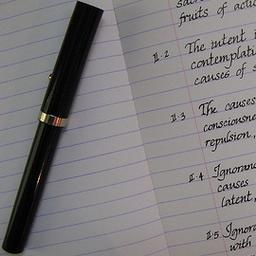 fruits of
II.2 The intent
contemplati
causes of s
II.3 The causes
consciousne
repulsion,
II.4 Ignoranc
causes
latent,
II.5 Ignora
with